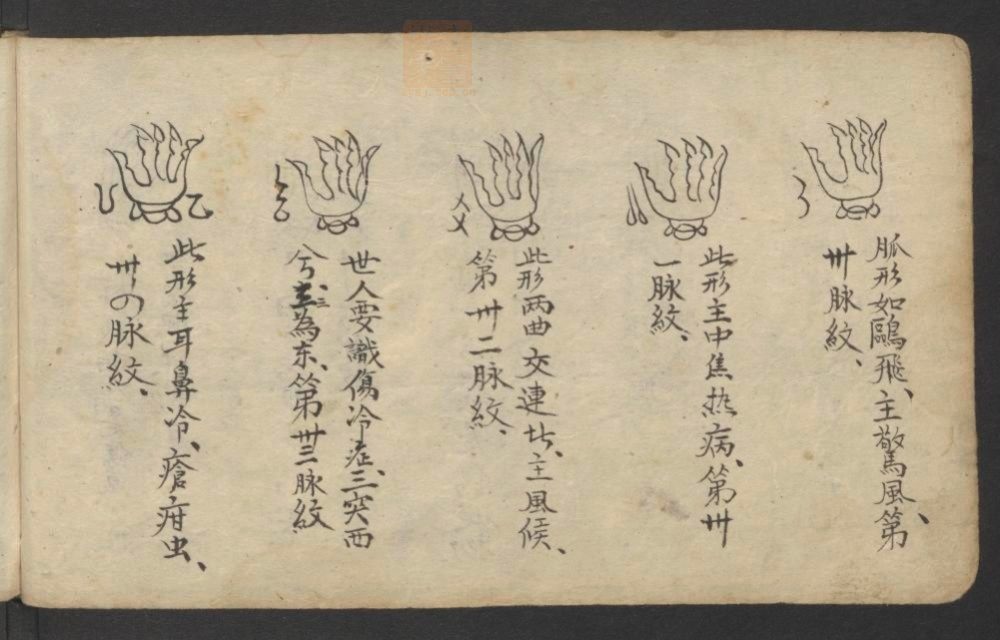 脈形如鷗飛、主驚風、第
卅脉紋、
此形主中焦热病、第卅
一脉紋、
此形两曲交連比、主風候、
第卅二脉紋、
世人要識傷冷症、三突西
兮主三為东、第卅三脉紋
此形主耳鼻冷、瘡疳虫、
卅の脉紋、